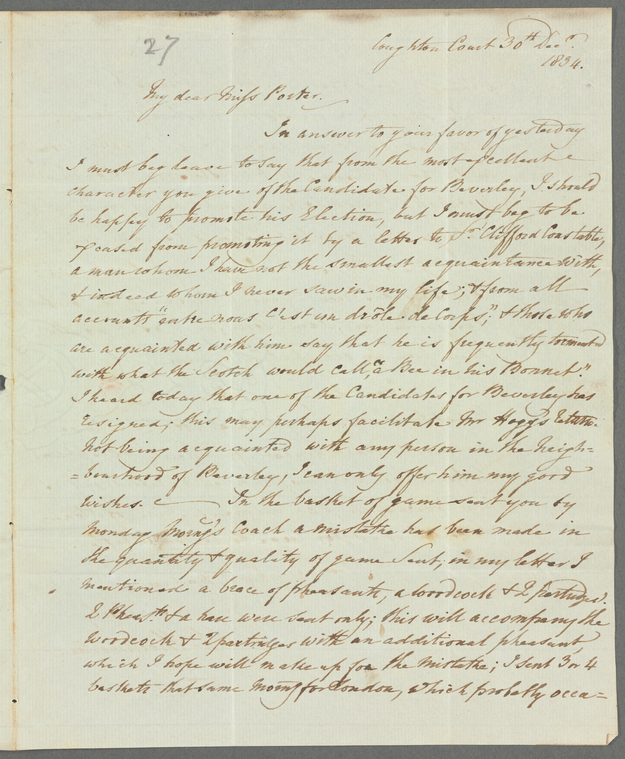 27
Coughton Court 30th Decr.
1834.
My dear Miss Porter.
In answer to your favor of yesterday
I must beg leave to say that from the most excellent
character you give of the Candidate for Beverley, I should
be happy to promote his Election, but I must beg to be
excused from promoting it by a letter to Sr. Clifford Constable,
a man whom I have not the smallest acquaintance with,
& indeed whom I never saw in my life; & from all
accounts "entre nous c'est un drole de Corps"; & those who
are acquainted with him say that he is frequently tormented
with what the Scotch would call, "a Bee in his Bonnet."
I heard today that one of the Candidates for Beverley has
resigned; this may perhaps facilitate Mr Hogg's return.
Not being acquainted with any person in the Neigh-
-bourhood of Beverley, I can only offer him my good
wishes. — In the basket of game sent you by
Monday Morng's Coach a mistake has been made in
the quantity & quality of game sent; in my letter I
mentioned a brace of pheasants, a woodcock & 2 partridges.
2 Pheasts & a hare were sent only; this will accompany the
Woodcock & 2 partridges with an additional pheasant,
which I hope will make up for the mistake; I sent 3 or 4
baskets that same Morng for London, which probably occa=